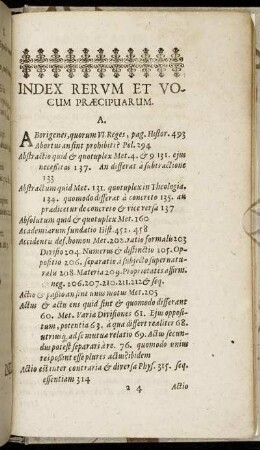 INDEX RERVM ET VO-
CUM PRÆCIPUARUM.
A.
ABorigenes, quorum VI. Reges, pag. Histor. 493
Abortus an sint prohibiti? Pol. 294
Abstractio quid & quotuplex Met. 4. & 9 131. ejus
necessitas 137. An differat à subtractione
133
Abstractum quid Met. 131. quotuplex in Theologia.
134. quomodo differat à concreto 135. an
prædicetur de concreto & vice versa 137
Absolutum quid & quotuplex Met. 160
Academiarum fundatio Hist. 452. 458
Accidentis def. & nomen Met. 202. ratio formalis 203
Divisio 204. Numerus & distinctio 105. Op-
positio 206. separatio à subjecto supernatu-
ralis 208 Materia 209. Proprietates affirm.
neg. 206. 207. 210. 211. 212 & seq.
Actio & passio an sint unus motus Met. 205
Actus & actu ens quid sint & quomodo differant
60. Met. Varia Divisiones 61. Ejus opposi-
tum, potentia 63. à qua differt realiter 68.
utriusq; ad se mutuo relatio 69. Actus secun-
dus potest separari à re. 76. quomodo unius
rei possint esse plures actus? ibidem
Actio est inter contraria & diversa Phys. 315. seq.
essentiam 314
2 4 Actio